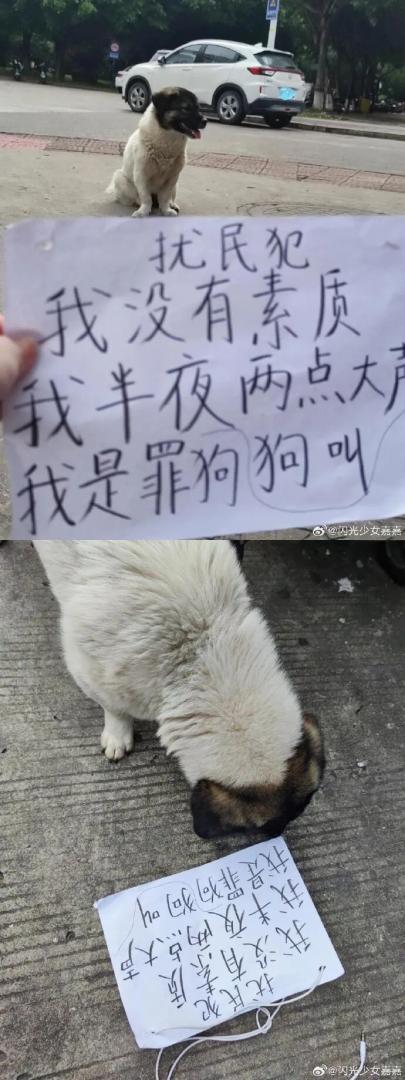 扰民犯
我没有素质
我半夜两点大声
我是罪狗狗叫
@闪光少女嘉嘉
扰民犯
我没有素质
我半夜两点大声
我是罪狗狗叫
@闪光少女嘉嘉